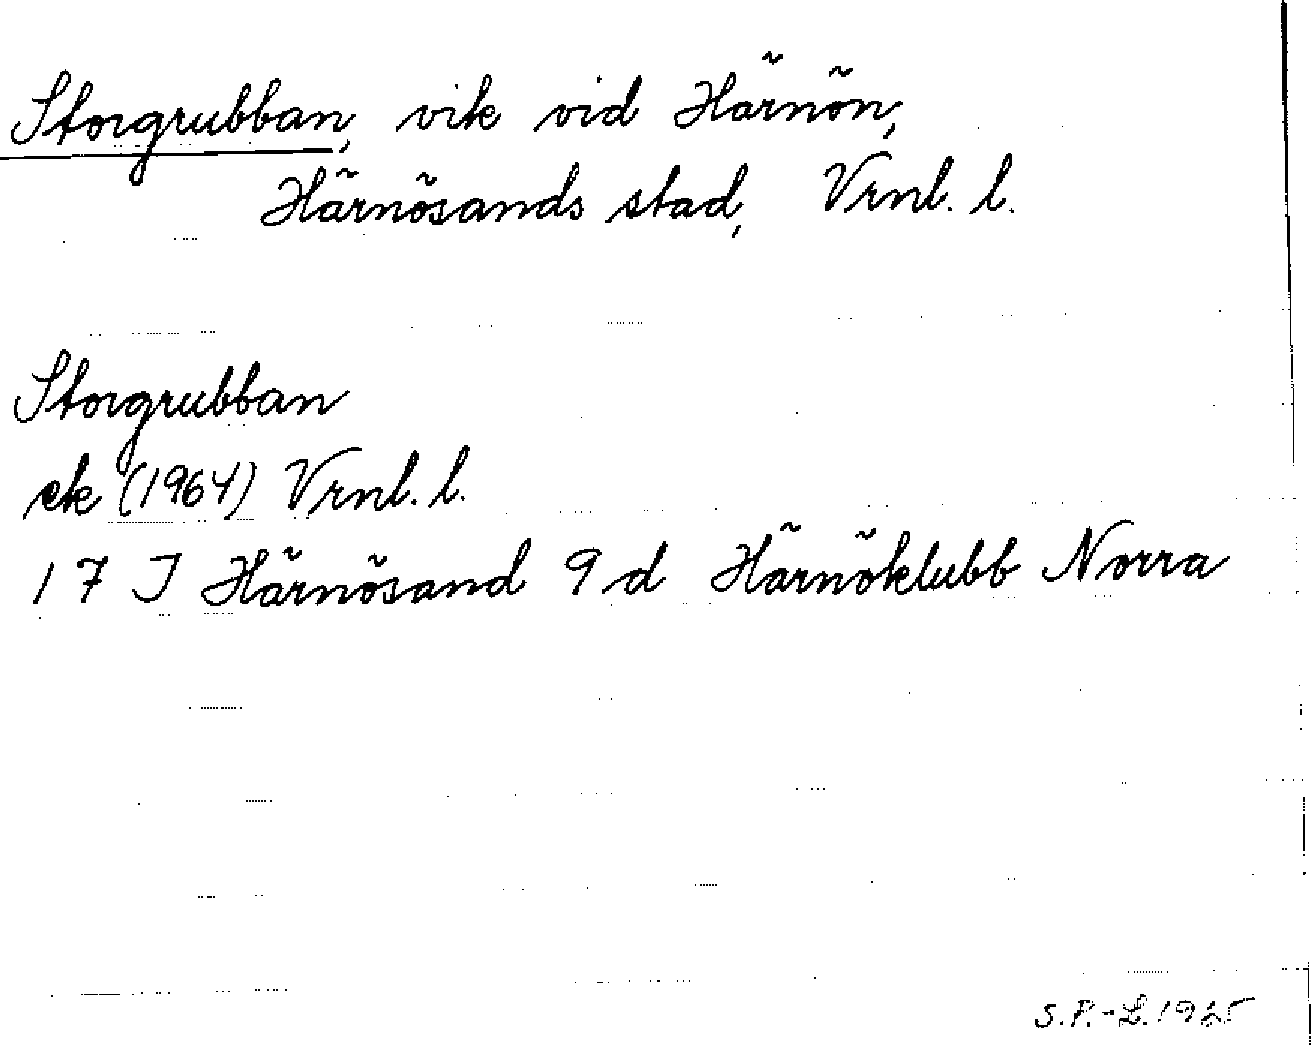 Storgrubban, vik vid Härnön,
Härnösands stad, Vrnl. l.
Storgrubban
ek (1964) Vrnl. l.
17 I Härnösand 9 d Härnöklubb Norra
S.P.-L. 1965